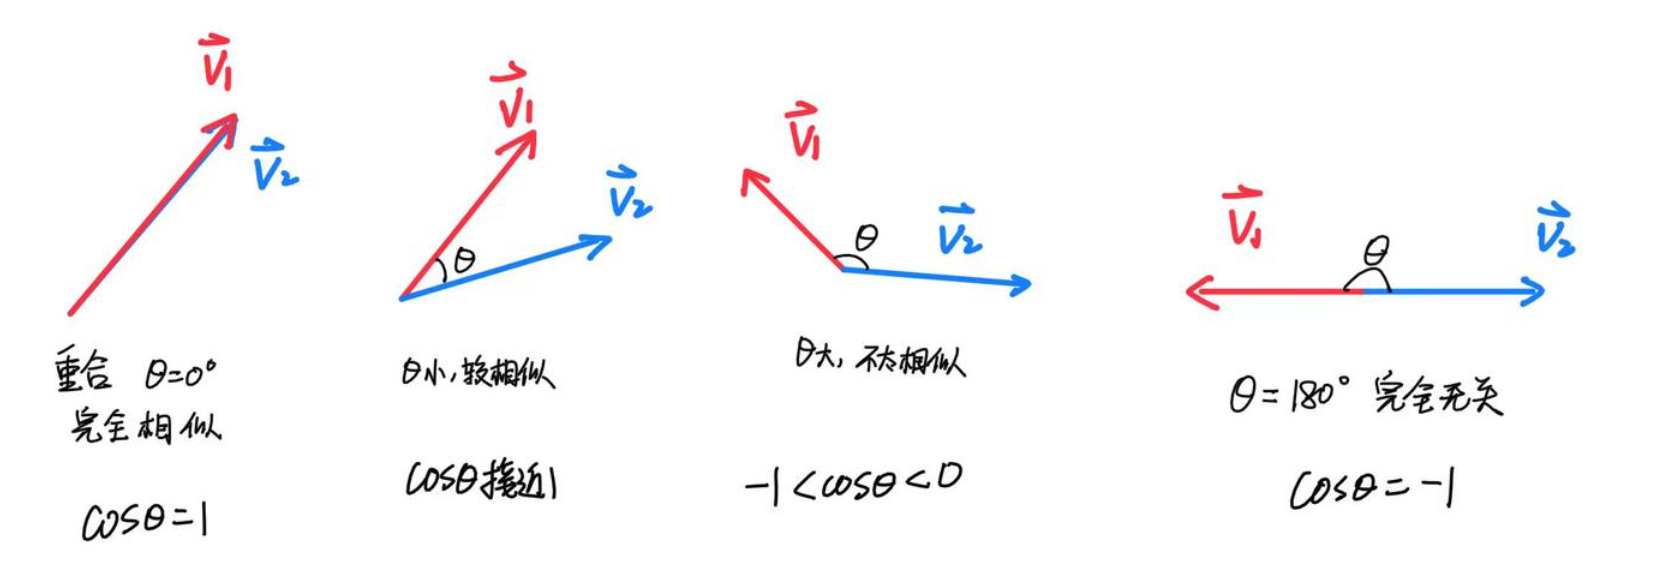 V₁
V₂
重合 θ=0°
完全相似
cosθ=1
V₁
V₂
θ
θ小,较相似
cosθ接近1
V₁
V₂
θ
θ大,不太相似
-1<cosθ<0
V₁
V₂
θ
θ=180° 完全无关
cosθ=-1